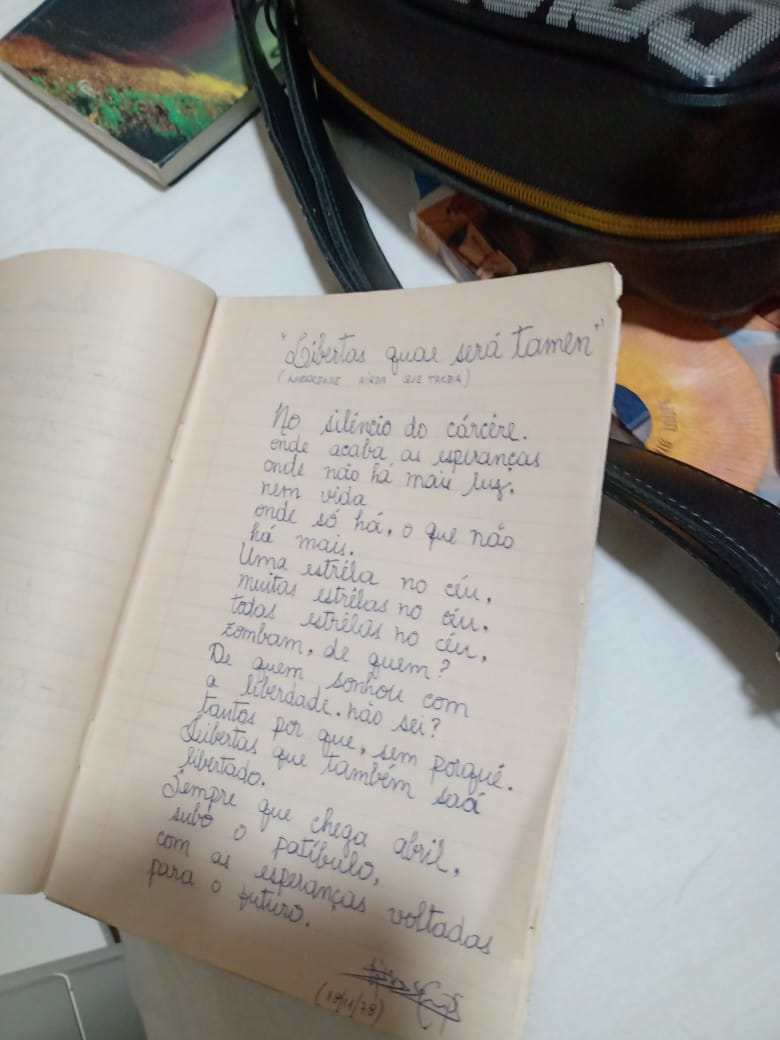 "Libertas quae será tamen"
(LIBERDADE AINDA QUE TARDIA)
No silêncio do cárcere.
onde acaba as esperanças
onde não há mais luz,
nem vida
onde só há, o que não
há mais.
Uma estrêla no céu,
muitas estrêlas no céu.
todas estrêlas no céu,
zombam, de quem?
De quem sonhou com
a liberdade, não sei?
tantos por que, sem porquê.
Libertas que também será
libertado.
Sempre que chega abril,
subo o patíbulo,
com as esperanças voltadas
para o futuro.